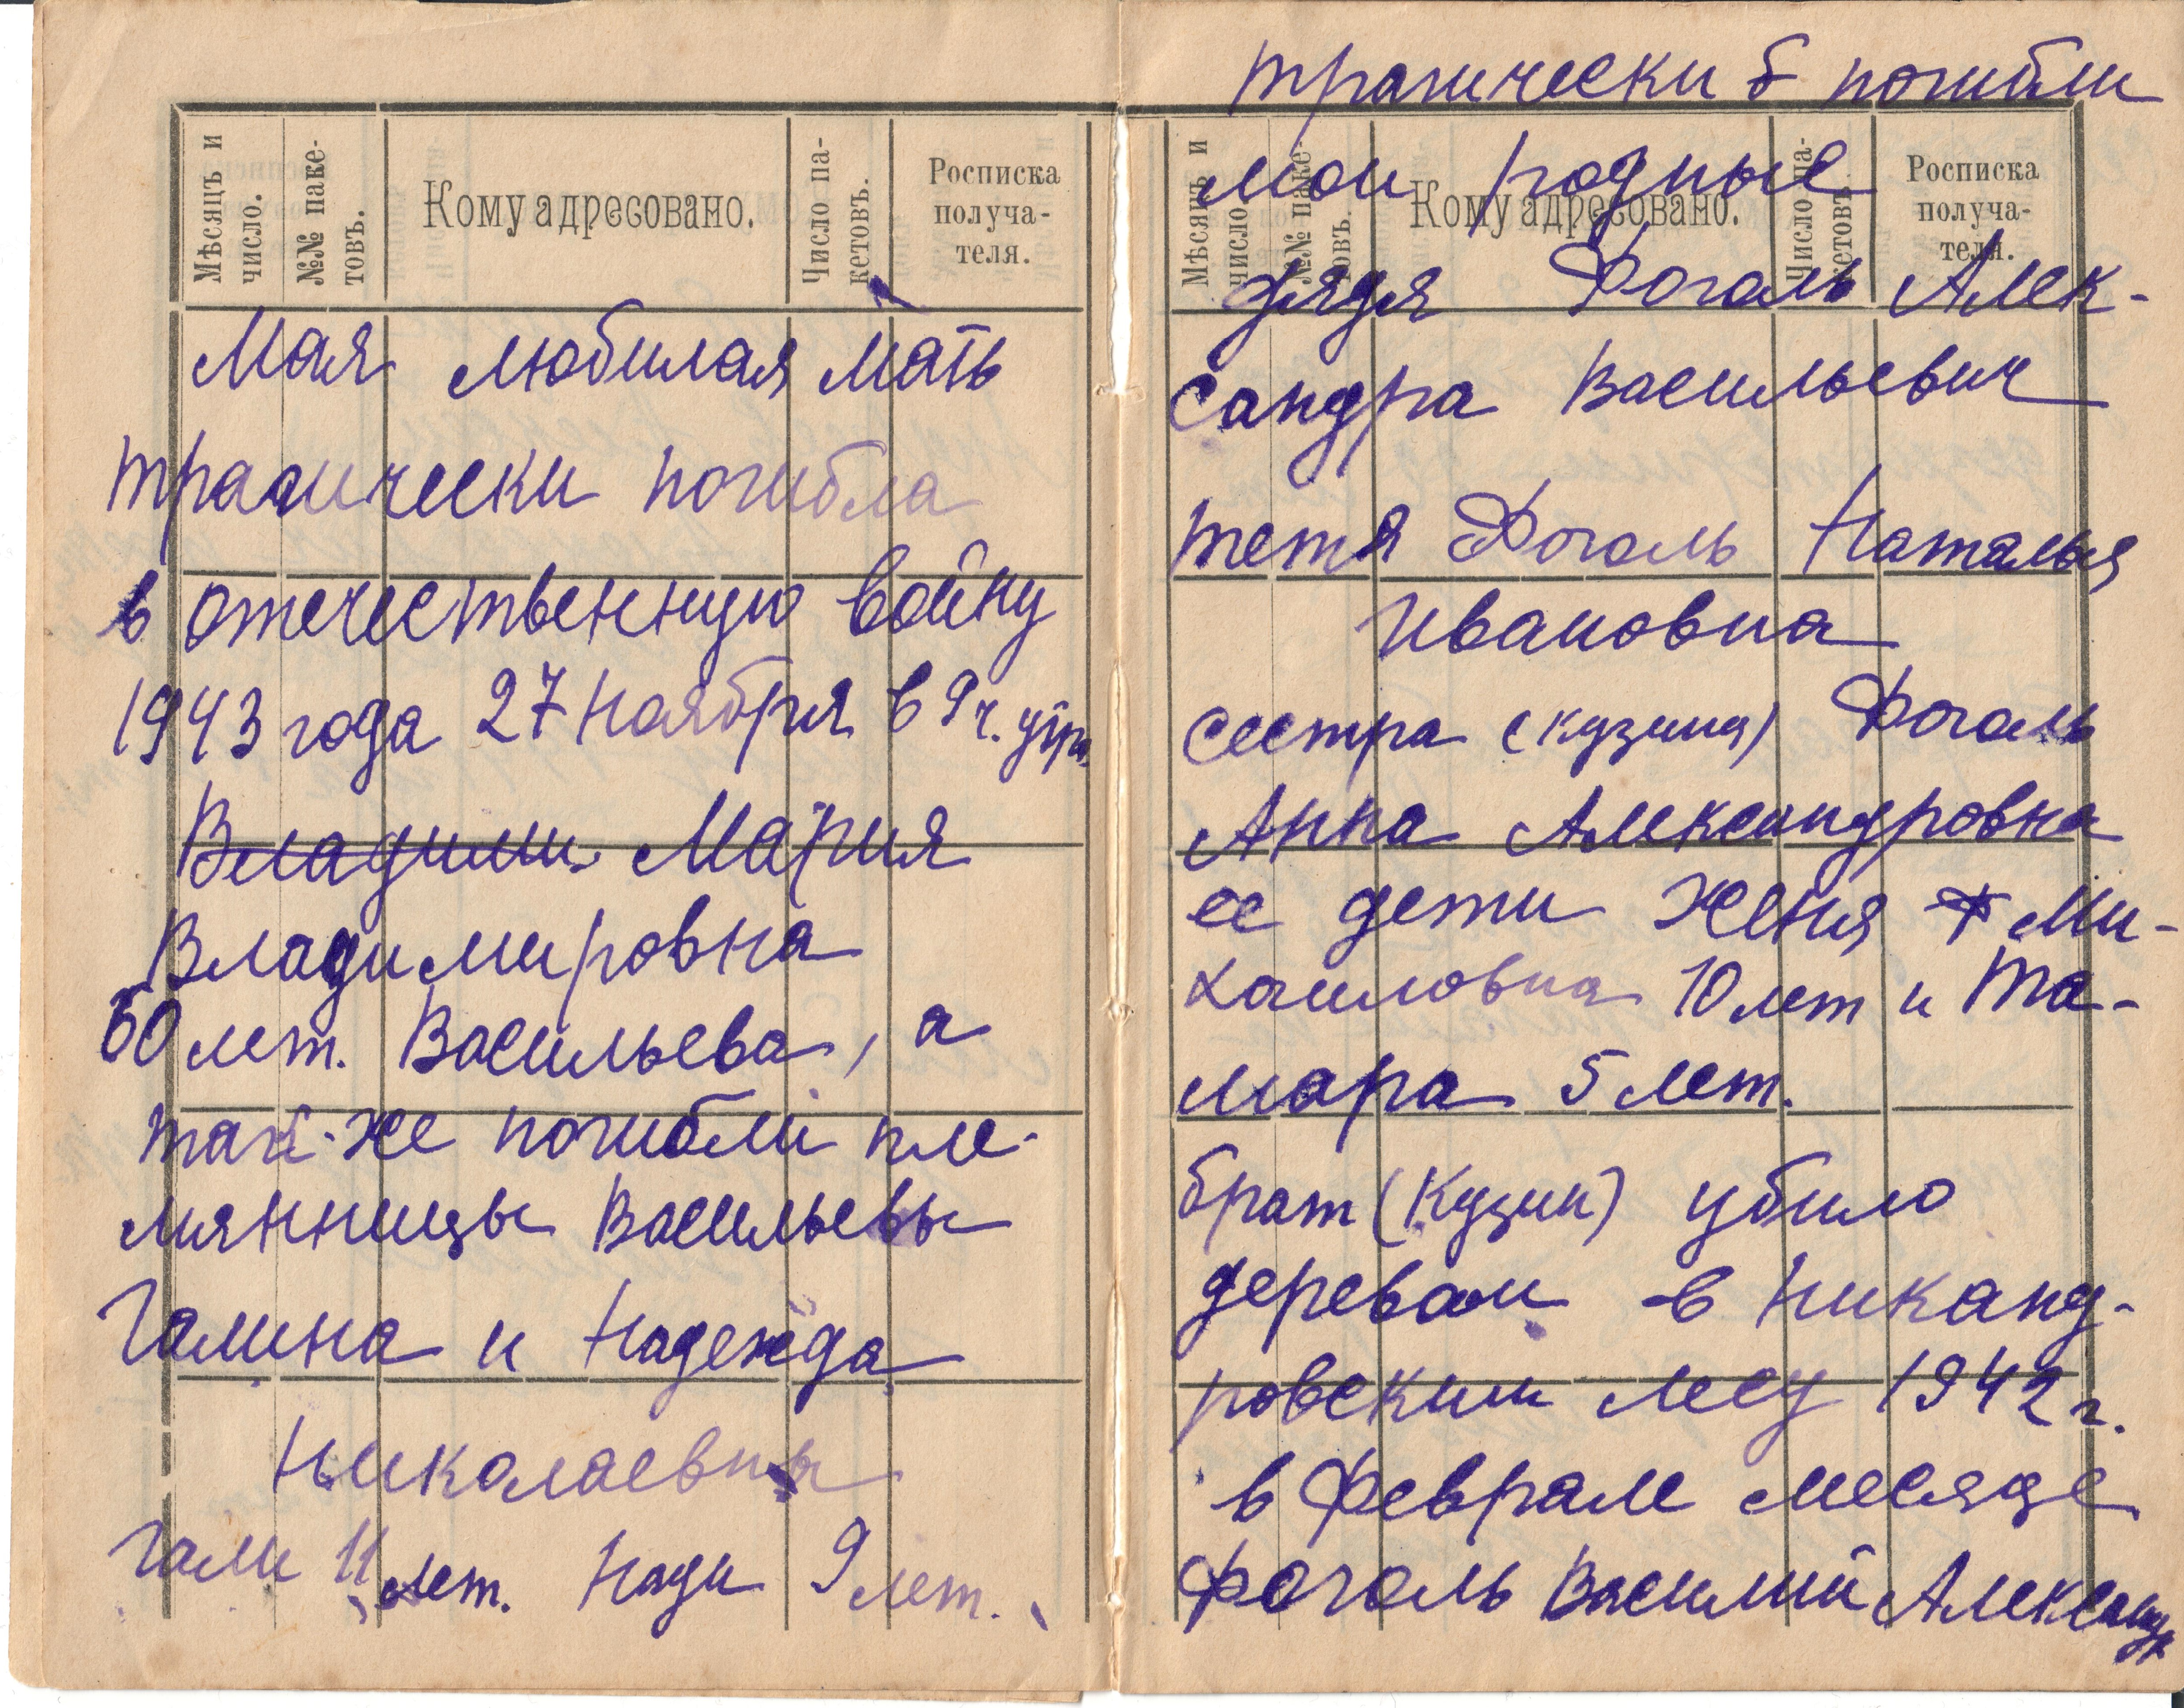 Мѣсяцъ и число.
№№ паке-товъ.
Кому адресовано.
Число па-кетовъ.
Росписка
получа-
теля.
Мая любилая мать
трагически погибла
в отечественную войну
1943 года 27 ноября в 9 ч. утр.
Владими Мария
Владимировна
60 лет. Васильева, а
так-же погибли пле-
мянницы Васильевы
Галина и Надежда
Николаевны
Гали 11 лет. Нади 9 лет.
трагически б погибли
Мѣсяцъ и число
№№ паке-товъ.
Кому адресовано.
Число па-кетовъ
Росписка
получа-
теля.
мои родные
дядя Фогаль Алек-
сандра Васильевич
тетя Фогаль Наталья
Ивановна
сестра (кузина) Фогаль
Анна Александровна
ее дети Женя Ми-
хаиловна 10 лет и Та-
мара 5 лет.
брат (кузин) убило
деревом в Никанд-
ровским лесу 1942 г.
в феврале месяце
Фогаль Василий Александ